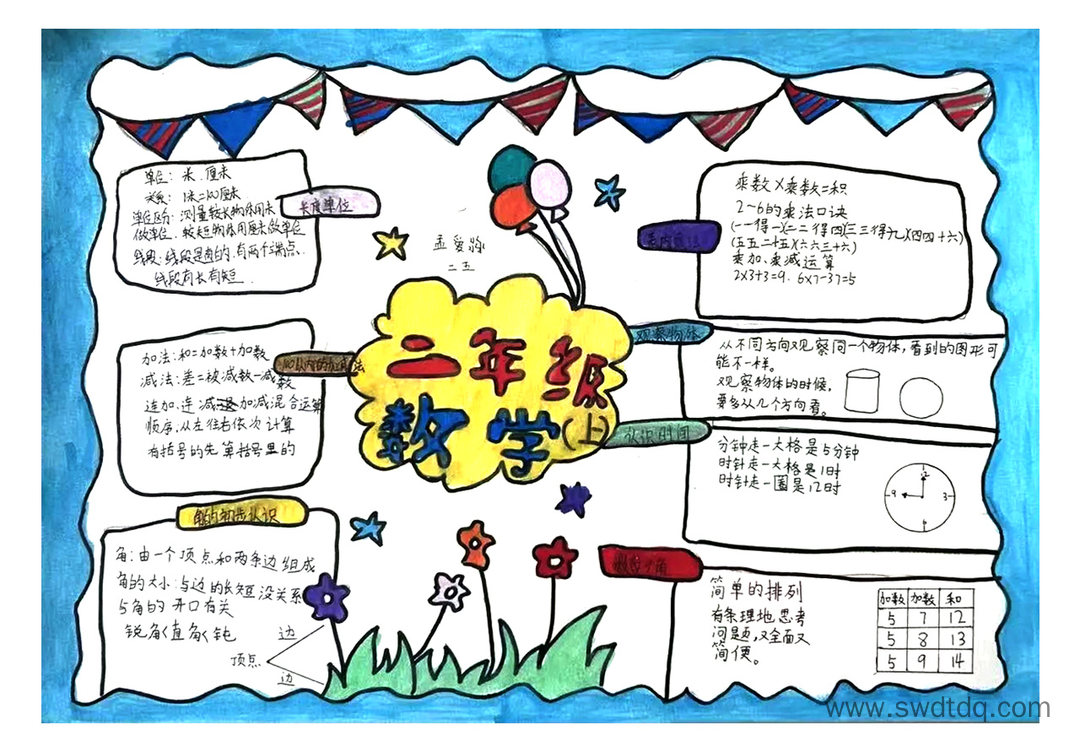 单位：米、厘米
关系：1米=100厘米
单位区分：测量较长物体用米
做单位，较短物体用厘米做单位
线段：线段是直的，有两个端点.
线段有长有短.
长度单位
孟
二五
二年级
数学(上)
加法:和=加数+加数
减法:差=被减数-减数
连加、连减 加减混合运算
顺序,从左往右依次计算
有括号的先算括号里的
100以内的加减法
角的初步认识
角:由一个顶点和两条边组成
角的大小:与边的长短没关系
与角的开口有关
锐角<直角<钝
边
顶点
边
表内乘法
乘数×乘数=积
2~6的乘法口诀
(一一得一)(二二得四)(三三得九)(四四十六)
(五五二十五)(六六三十六)
乘加、乘减运算
2x3+3=9. 6x7-37=5
观察物体
从不同方向观察同一个物体,看到的图形可
能不一样。
观察物体的时候,
要多从几个方向看。
认识时间
分钟走一大格是5分钟
时针走一大格是1时
时针走一圈是12时
12
9 3
6
数学广角
简单的排列
有条理地思考
问题,又全面又
简便。
加数 加数 和
5 7 12
5 8 13
5 9 14
www.swdtdq.com